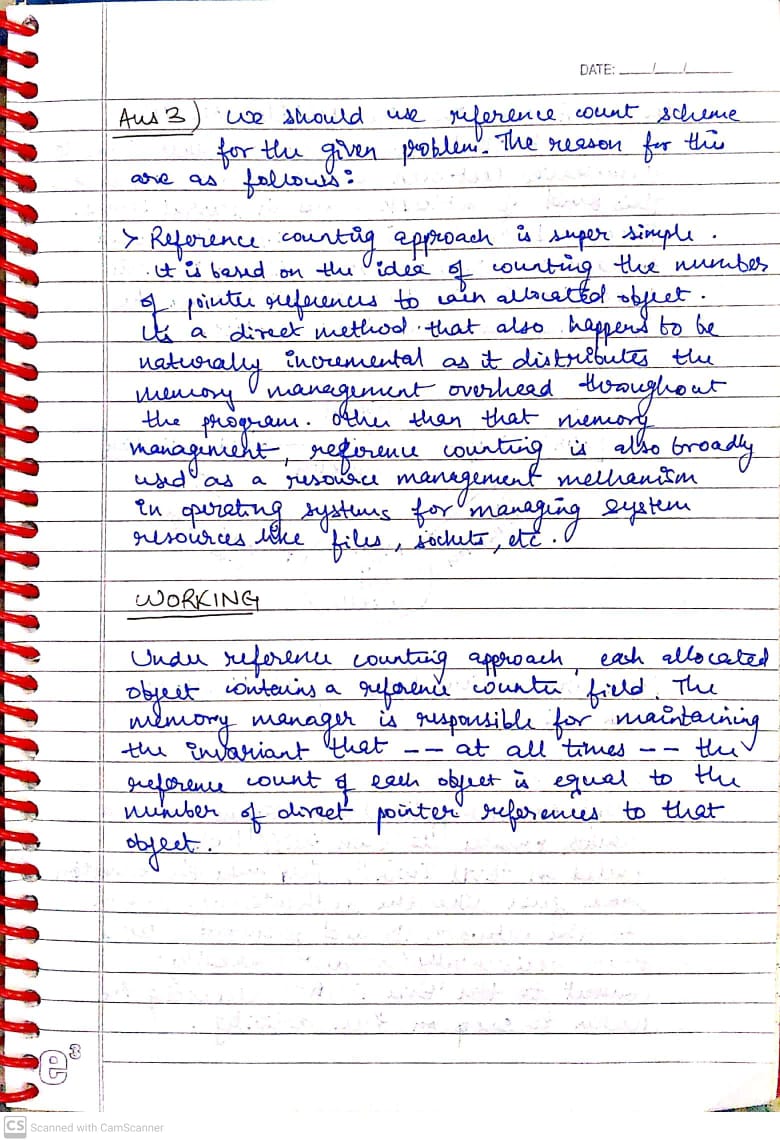 DATE: __/__/__
Ans 3) we should use reference count scheme
for the given problem. The reason for this
are as follows:
> Reference counting approach is super simple.
It is based on the idea of counting the number
of pointer references to each allocated object.
Its a direct method that also happens to be
naturally incremental as it distributes the
memory management overhead throughout
the program. Other than that memory
management, reference counting is also broadly
used as a resource management mechanism
in operating systems for managing system
resources like files, sockets, etc.
WORKING
Under reference counting approach, each allocated
object contains a reference counter field. The
memory manager is responsible for maintaining
the invariant that -- at all times -- the
reference count of each object is equal to the
number of direct pointer references to that
object.
e3
CS Scanned with CamScanner